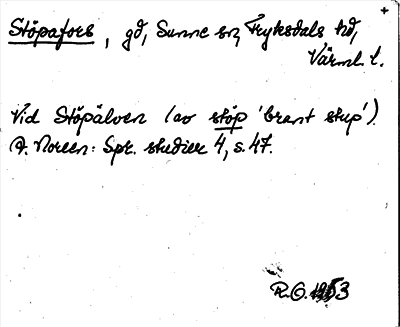 Stöpafors, gd, Sunne sn, Fryksdals hd,
Värml. l.
Vid Stöpälven (av stöp 'brant stup').
A. Noreen: Spr. studier 4, s. 47.
R.O. 1953